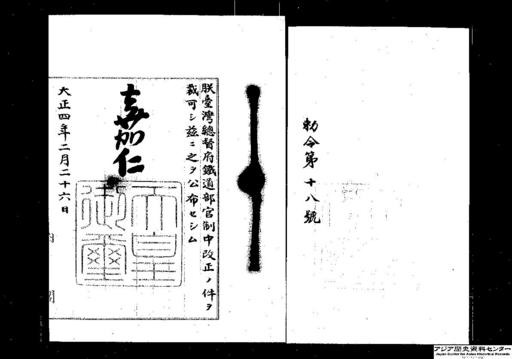 勅令第十八號
朕臺灣總督府鐵道部官制中改正ノ件ヲ
裁可シ茲ニ之ヲ公布セシム
嘉仁
天皇
御璽
大正四年二月二十六日
内閣
アジア歴史資料センター
Japan Center for Asian Historical Records